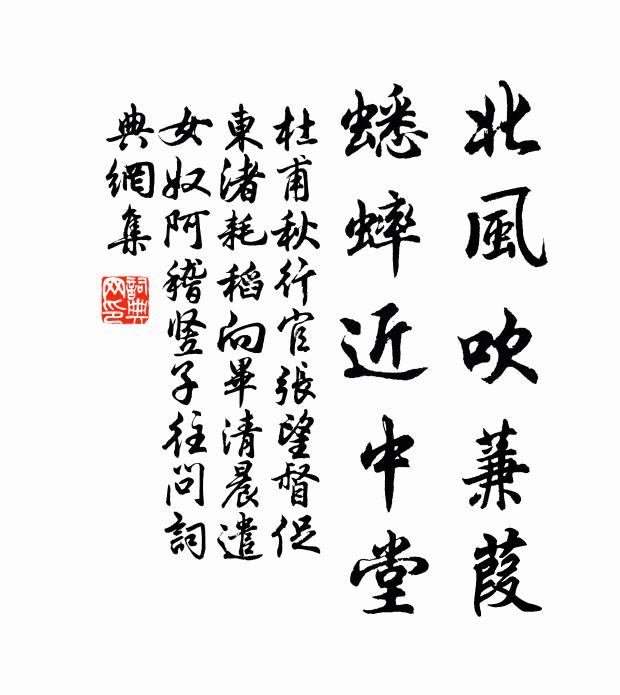 北風吹蒹葭
蟋蟀近中堂
杜甫秋行官張望督促
東渚耗稻向畢清晨遣
女奴阿稽竖子往問詞
典網集
詞典
网印